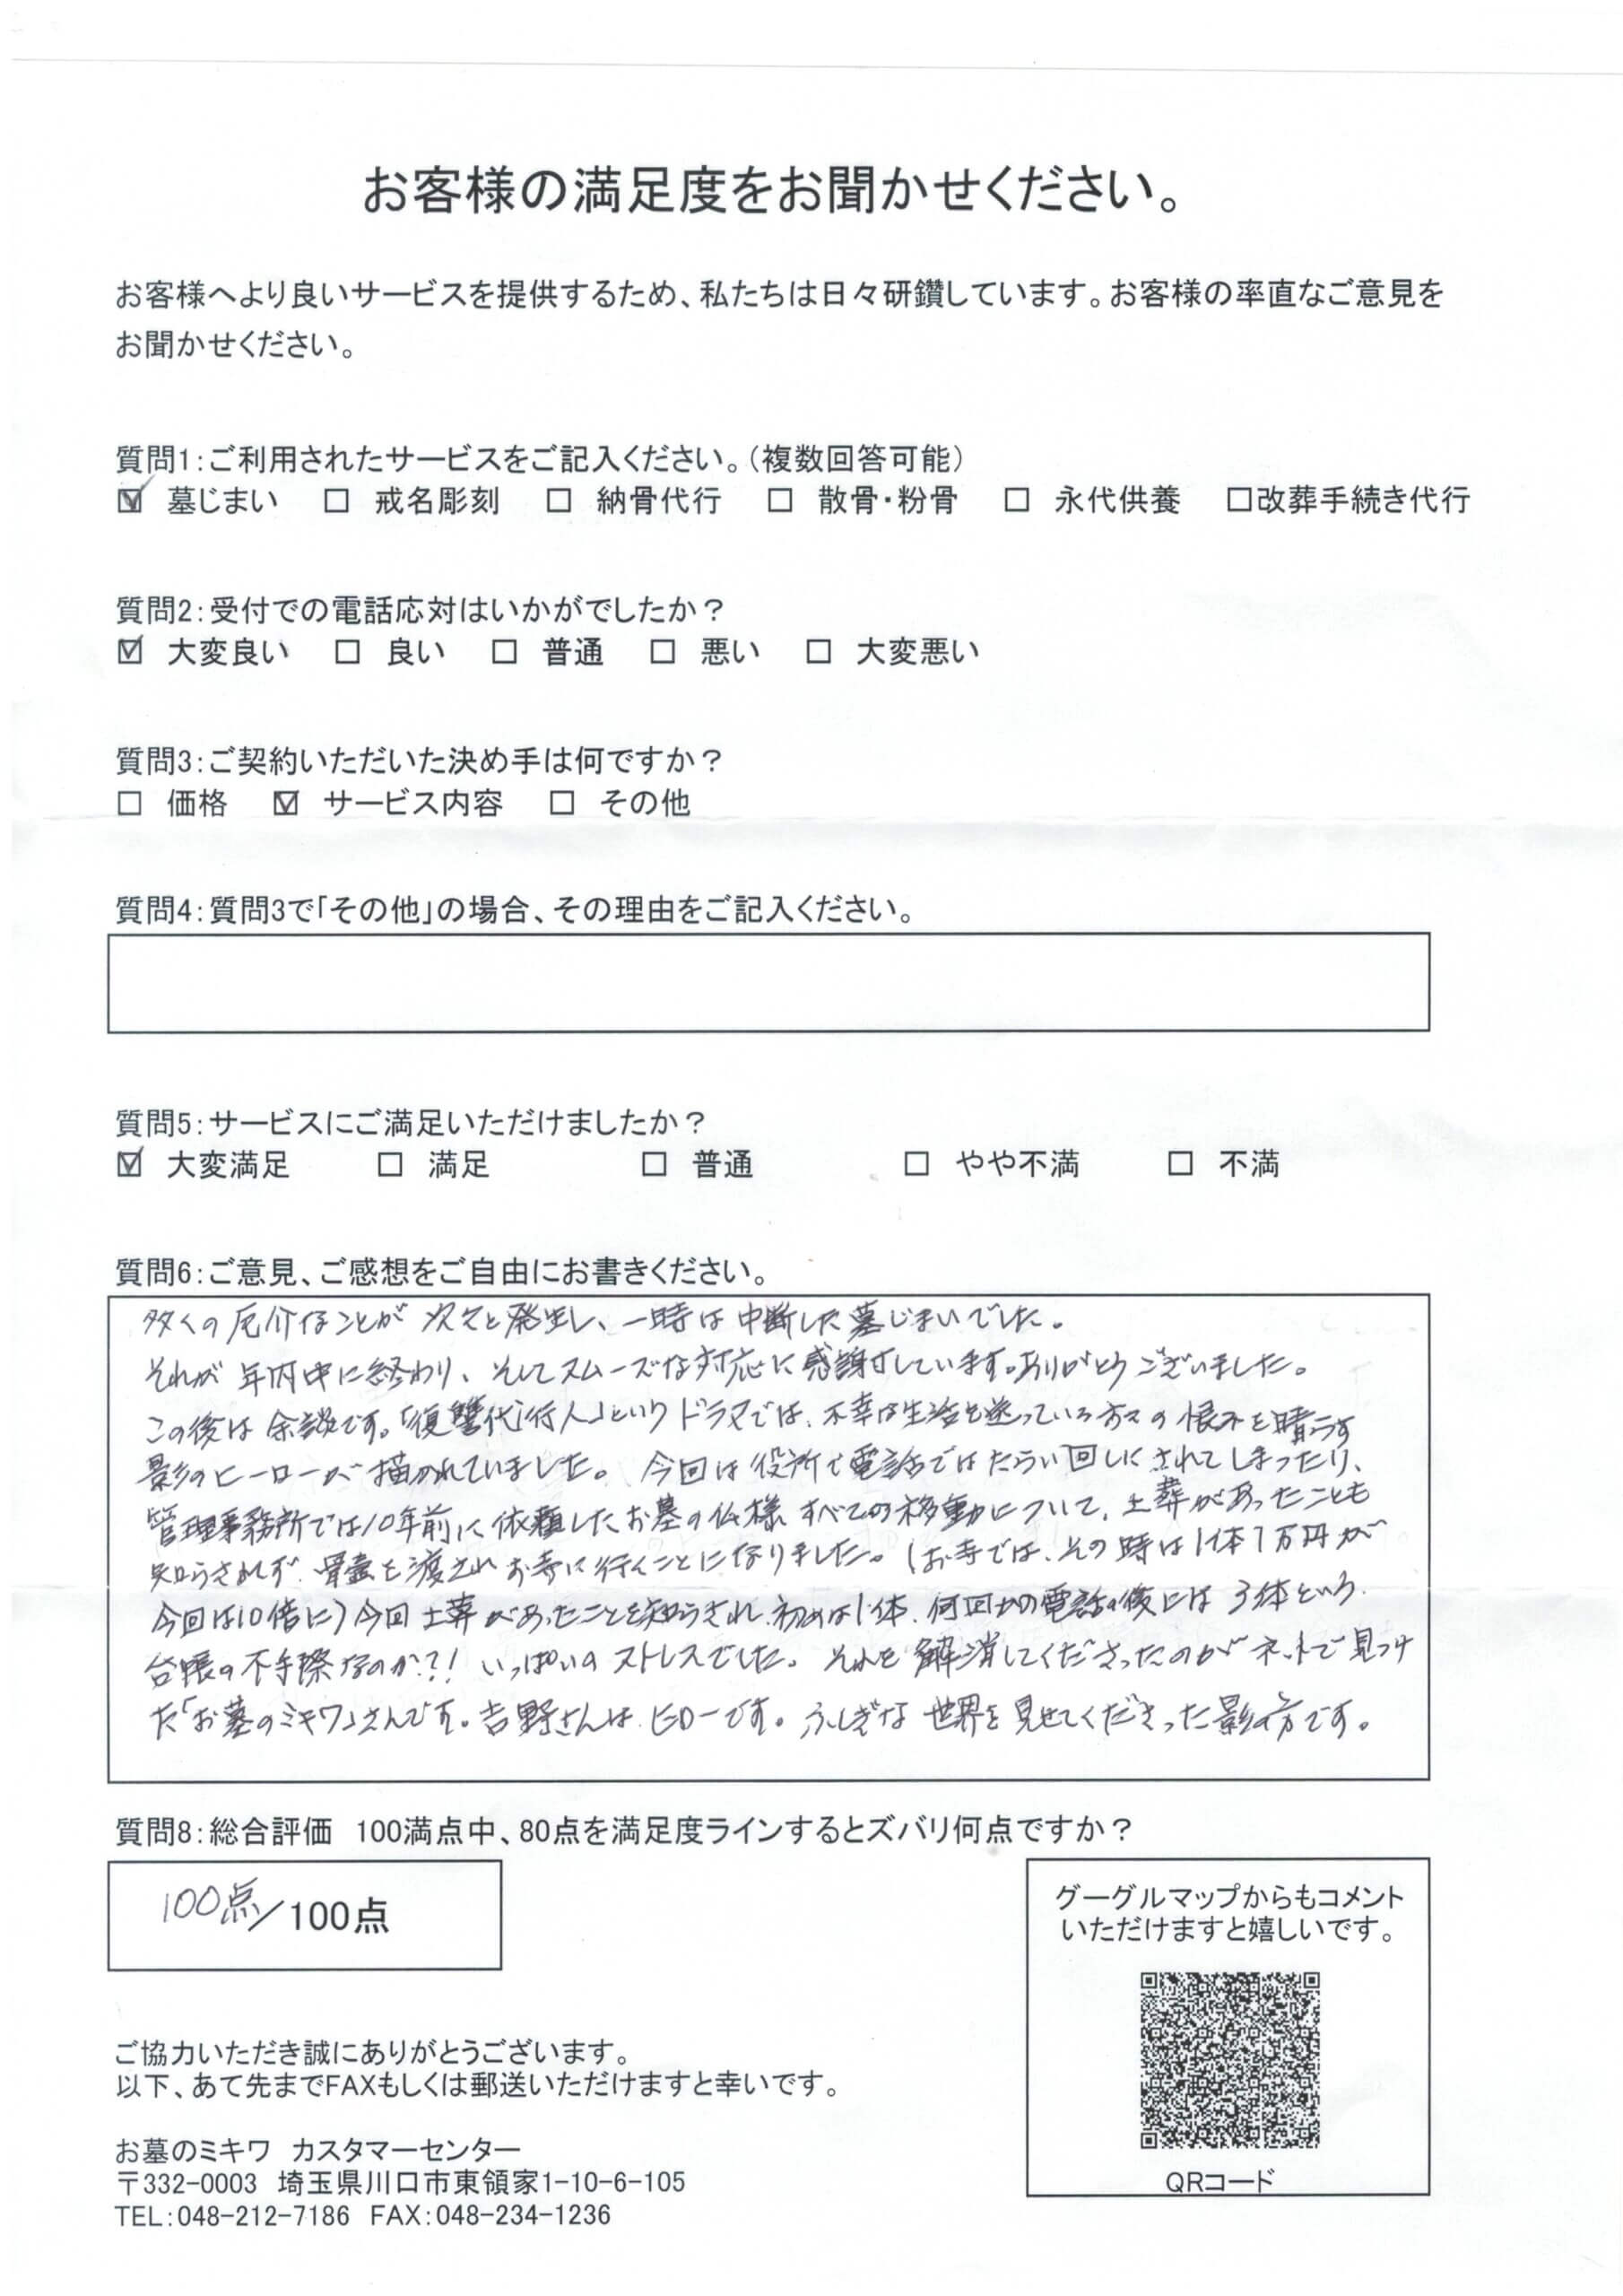 お客様の満足度をお聞かせください。
お客様へより良いサービスを提供するため、私たちは日々研鑽しています。お客様の率直なご意見を
お聞かせください。
質問1:ご利用されたサービスをご記入ください。(複数回答可能)
☑ 墓じまい □ 戒名彫刻 □ 納骨代行 □ 散骨・粉骨 □ 永代供養 □改葬手続き代行
質問2:受付での電話応対はいかがでしたか?
☑ 大変良い □ 良い □ 普通 □ 悪い □ 大変悪い
質問3:ご契約いただいた決め手は何ですか?
□ 価格 ☑ サービス内容 □ その他
質問4:質問3で「その他」の場合、その理由をご記入ください。
質問5:サービスにご満足いただけましたか?
☑ 大変満足 □ 満足 □ 普通 □ やや不満 □ 不満
質問6:ご意見、ご感想をご自由にお書きください。
多くの厄介なことが次々と発生し、一時は中断した墓じまいでした。
それが年内中に終わり、そしてスムーズな対応に感謝しています。ありがとうございました。
この後は余談です。「復讐代行人」というドラマでは、不幸な生活を送っている方々の恨みを晴らす
影のヒーローが描かれていました。今回は役所で電話ではたらい回しにされてしまったり、
管理事務所では10年前に依頼したお墓の仏様すべての移動について、土葬があったことも
知らされず、骨壷を渡されお寺に行くことになりました。(お寺では、その時は1体1万円が
今回は10倍に)今回土葬があったことを知らされ、初めは1体、何回かの電話の後には3体という
台帳の不手際なのか?!いっぱいのストレスでした。それを解消してくださったのがネットで見つけ
た「お墓のミキワ」さんです。吉野さんは、ヒーローです。ふしぎな世界を見せてくださった影の方です。
質問8:総合評価 100満点中、80点を満足度ラインするとズバリ何点ですか?
100点/100点
グーグルマップからもコメント
いただけますと嬉しいです。
QRコード
ご協力いただき誠にありがとうございます。
以下、あて先までFAXもしくは郵送いただけますと幸いです。
お墓のミキワ カスタマーセンター
〒332-0003 埼玉県川口市東領家1-10-6-105
TEL:048-212-7186 FAX:048-234-1236